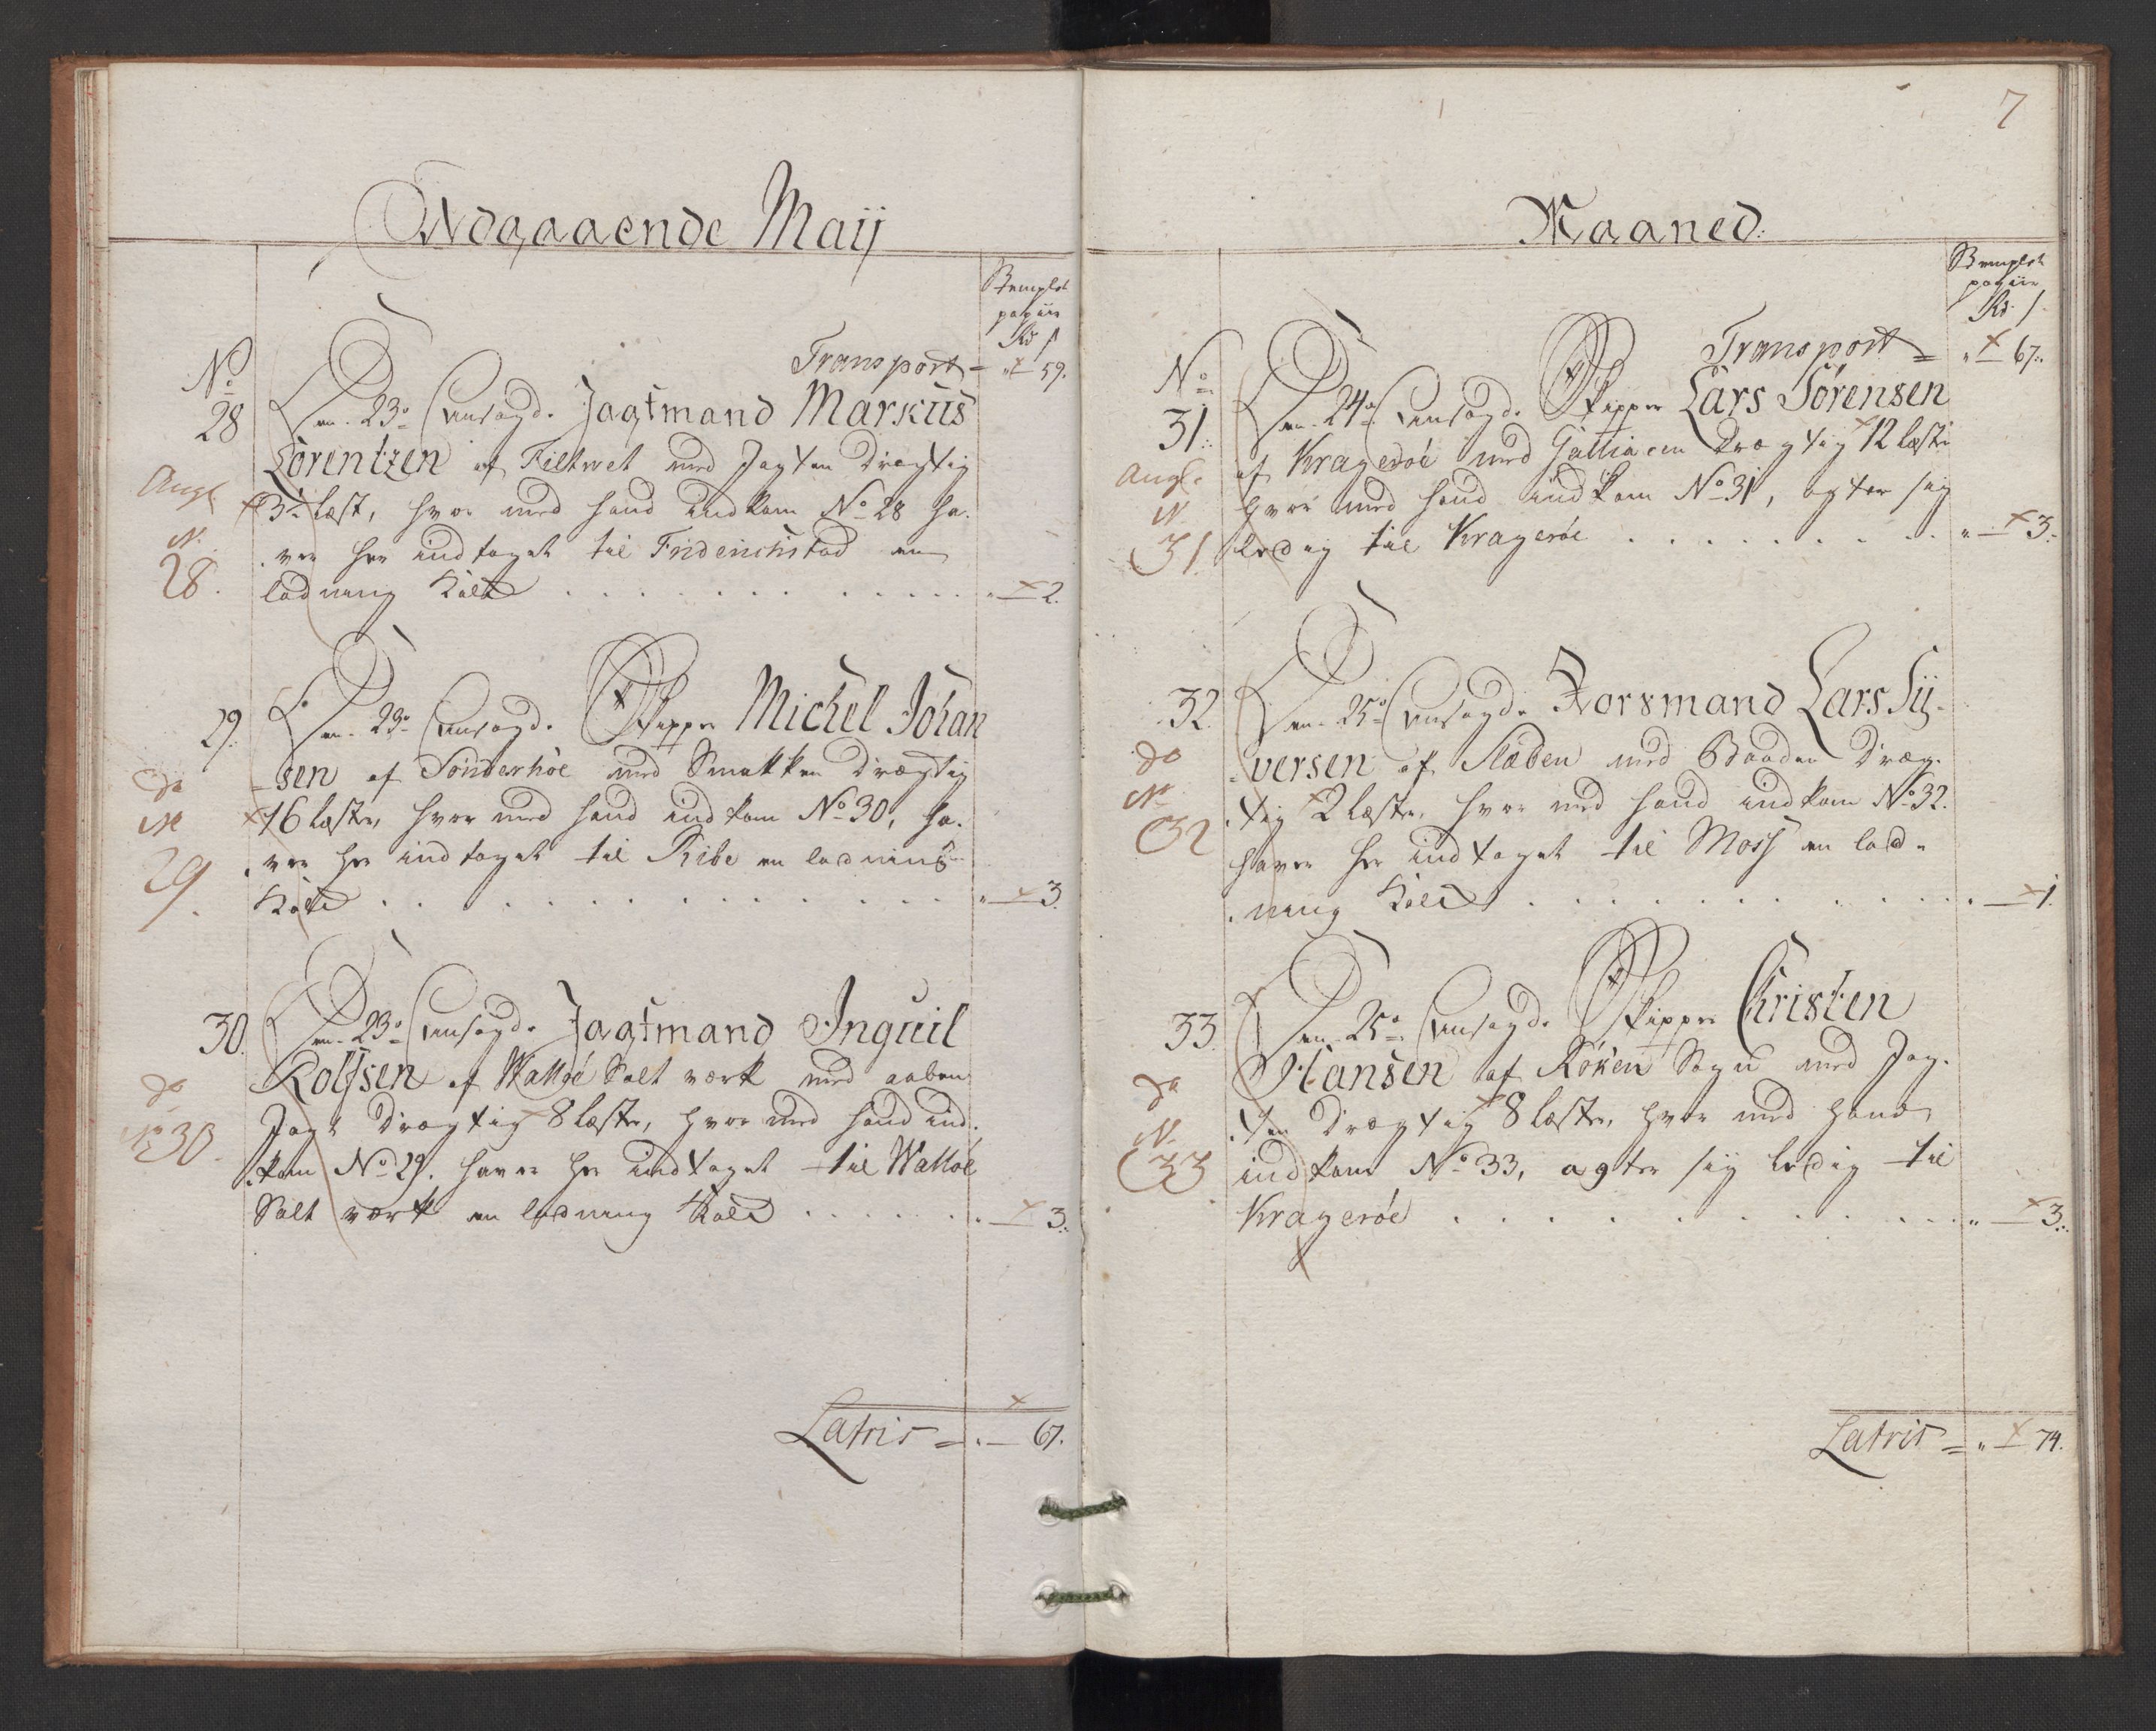 Udgaaende Maij
Stemplet
papiir
Rd s
Transport = " 59.
No
28
Den 23de Ansagde Jagtmand Markus
Lorentzen af Tiettvet med Jagten Drægtig
3½ læst, hvor med hand indkom No 28 ha-
ver her indtaget til Friderichstad en
ladning Kald . . . . . . . . " — 2.
Angl
N.
28.
29.
Den 23de Ansagde Skipper Michel Johan
-sen af Sønderhoe med Smakken Drægtig
16 læster, hvor med hand indkom No 30, ha-
ver her indtaget til Ribe en ladning
Kald . . . . . . . . " — 3.
do
N
29.
30.
Den 23de Ansagde Jagtmand Inguil
Rolfsen af Walløe Salt værk med aaben
Jagt Drægtig 8 læster, hvor med hand ind-
kom No 29. haver her indtaget til Walloe
Salt værk en ladning Kald . . . . . . " — 3.
do
No 30.
Latris = " — 67.
7
Maaned.
Stemplet
papiir
Rd. s
Transport = " — 67.
No
31.
Den 24de Ansagde Skipper Lars Sørensen
af Kragerøe med Galliacen Drægtig 12 læster
hvor med hand indkom No 31, agter sig
ledig til Kragerøe . . . . . . . . " — 3.
Angl.
N.
31.
32.
Den 25de Ansagde Forsmand Lars Sy-
versen af Slæben med Baaden Dræg-
tig 2 læster, hvor med hand indkom No 32.
haver her indtaget til Moss en lad-
ning Kald . . . . . . . . — 1.
do
No
32
33.
Den 25de Ansagde Skipper Christen
Hansen af Røken Sogn med Jag-
ten Drægtig 8 læster, hvor med hand
indkom No 33, agter sig ledig til
Kragerøe . . . . . . . . " — 3.
do
N.
33
Latris = " — 74.